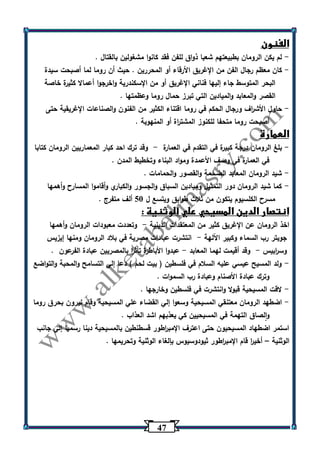 الفنون
- لم يكن الرومان بطبيعتهم شعبا ذواق للفن فقد كانوا مشغولين بالقتال .
- كان معظم رجال الفن من الإغريق الأرقاء أو المحررين . حيث أن روما لما أصبحت سيدة
البحر المتوسط جاء إليها فناني الإغريق أو من الإسكندرية واخرجوا أعمالا كثيرة خاصة
القصر والمعابد والميادين التي تبرز جمال روما وعظمتها .
- حاول الأشراف ورجال الحكم في روما اقتناء الكثير من الفنون والصناعات الإغريقية حتى
أصبحت روما متحفا للكنوز المشتراة أو المنهوبة .
العمارة
- بلغ الرومان درجة كبيرة في التقدم في العمارة - وقد ترك احد كبار المعماريين الرومان كتابا
في العمارة في وصف الأعمدة ومواد البناء وتخطيط المدن .
- شيد الرومان المعابد الضخمة والقصور والحمامات .
- كما شيد الرومان دور التمثيل وميادين السباق والجسور والكباري وأقاموا المسارح وأهمها
مسرح الكلسيوم يتكون من ثلاث طوابق ويتسع ل 50 ألف متفرج .
انتصار الدين المسيحي علي الوثنية :
اخذ الرومان عن الإغريق كثير من المعتقدات الدينية - وتعددت معبودات الرومان وأهمها
جوبتر رب السماء وكبير الآلهة - انتشرت عبادات مصرية في بلاد الرومان ومنها إيزيس
وسرابيس - وقد أقيمت لهما المعابد - عبدوا الأباطرة تأثرا بالمصريين عبادة الفرعون .
- ولد المسيح عيسى عليه السلام في فلسطين ( بيت لحم ) دعا إلي التسامح والمحبة والتواضع
وترك عبادة الأصنام وعبادة رب السموات .
- لاقت المسيحية قبولا وانتشرت في فلسطين وخارجها .
- اضطهد الرومان معتنقي المسيحية وسعوا إلي القضاء علي المسيحية وقام نيرون بحرق روما
والصاق التهمة في المسيحيين كي يعذبهم اشد العذاب .
استمر اضطهاد المسيحيون حتى اعترف الإمبراطور قسطنطين بالمسيحية دينا رسميا إلي جانب
الوثنية – أخيرا قام الإمبراطور ثيودوسيوس بإلغاء الوثنية وتحريمها .
47